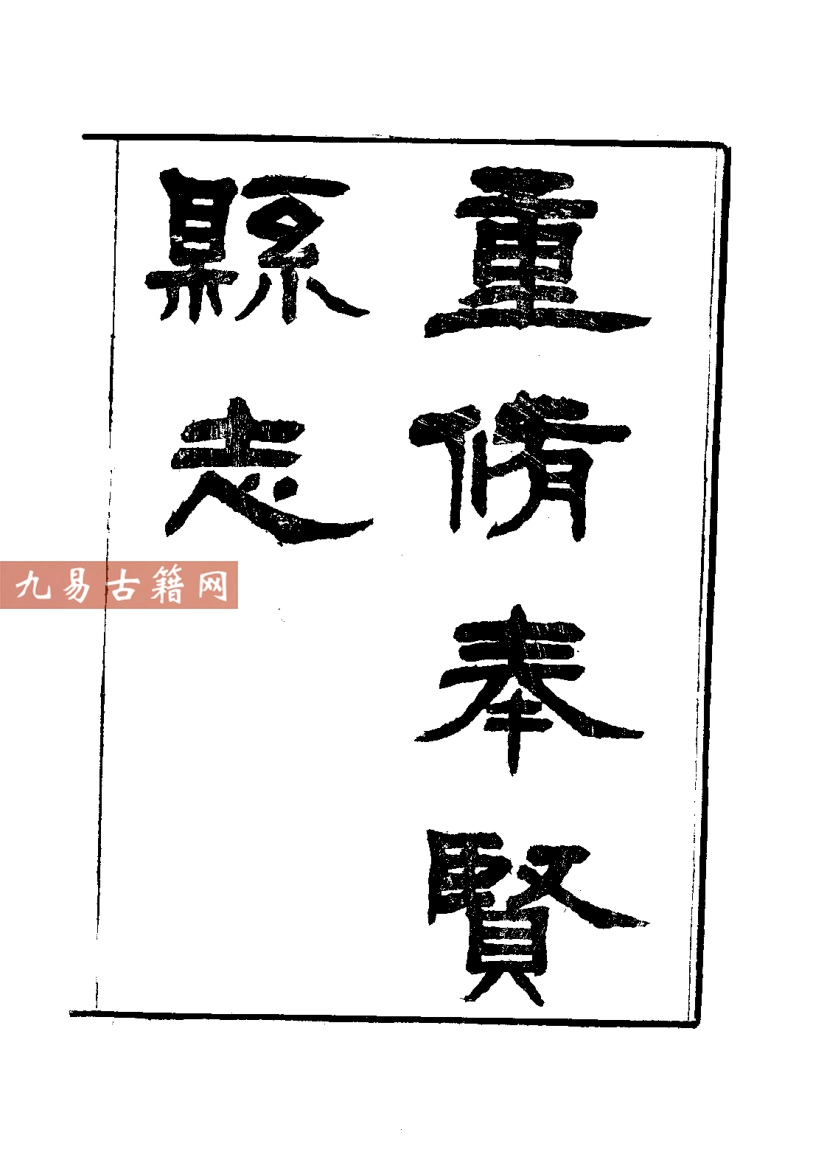 重脩奉賢
縣志
九易古籍网